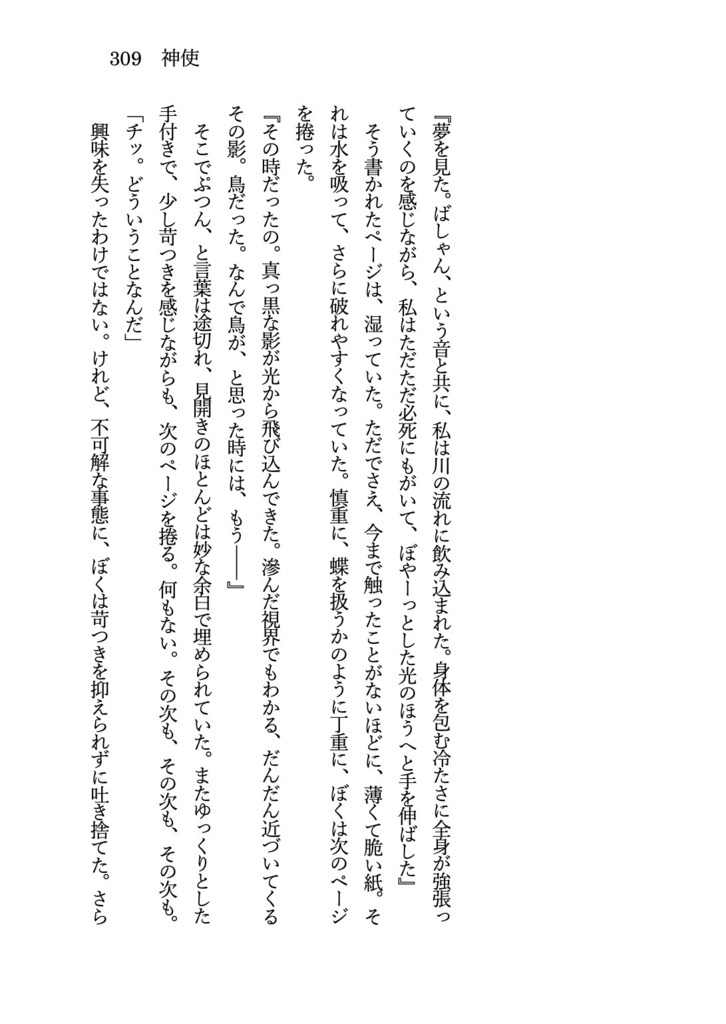 309 神使
『夢を見た。ばしゃん、という音と共に、私は川の流れに飲み込まれた。身体を包む冷たさに全身が強張っ
ていくのを感じながら、私はただただ必死にもがいて、ぼやーっとした光のほうへと手を伸ばした』
そう書かれたページは、湿っていた。ただでさえ、今まで触ったことがないほどに、薄くて脆い紙。そ
れは水を吸って、さらに破れやすくなっていた。慎重に、蝶を扱うかのように丁重に、ぼくは次のページ
を捲った。
『その時だったの。真っ黒な影が光から飛び込んできた。滲んだ視界でもわかる、だんだん近づいてくる
その影。鳥だった。なんで鳥が、と思った時には、もう――』
そこでぷつん、と言葉は途切れ、見開きのほとんどは妙な余白で埋められていた。またゆっくりとした
手付きで、少し苛つきを感じながらも、次のページを捲る。何もない。その次も、その次も、その次も。
「チッ。どういうことなんだ」
興味を失ったわけではない。けれど、不可解な事態に、ぼくは苛つきを抑えられずに吐き捨てた。さら